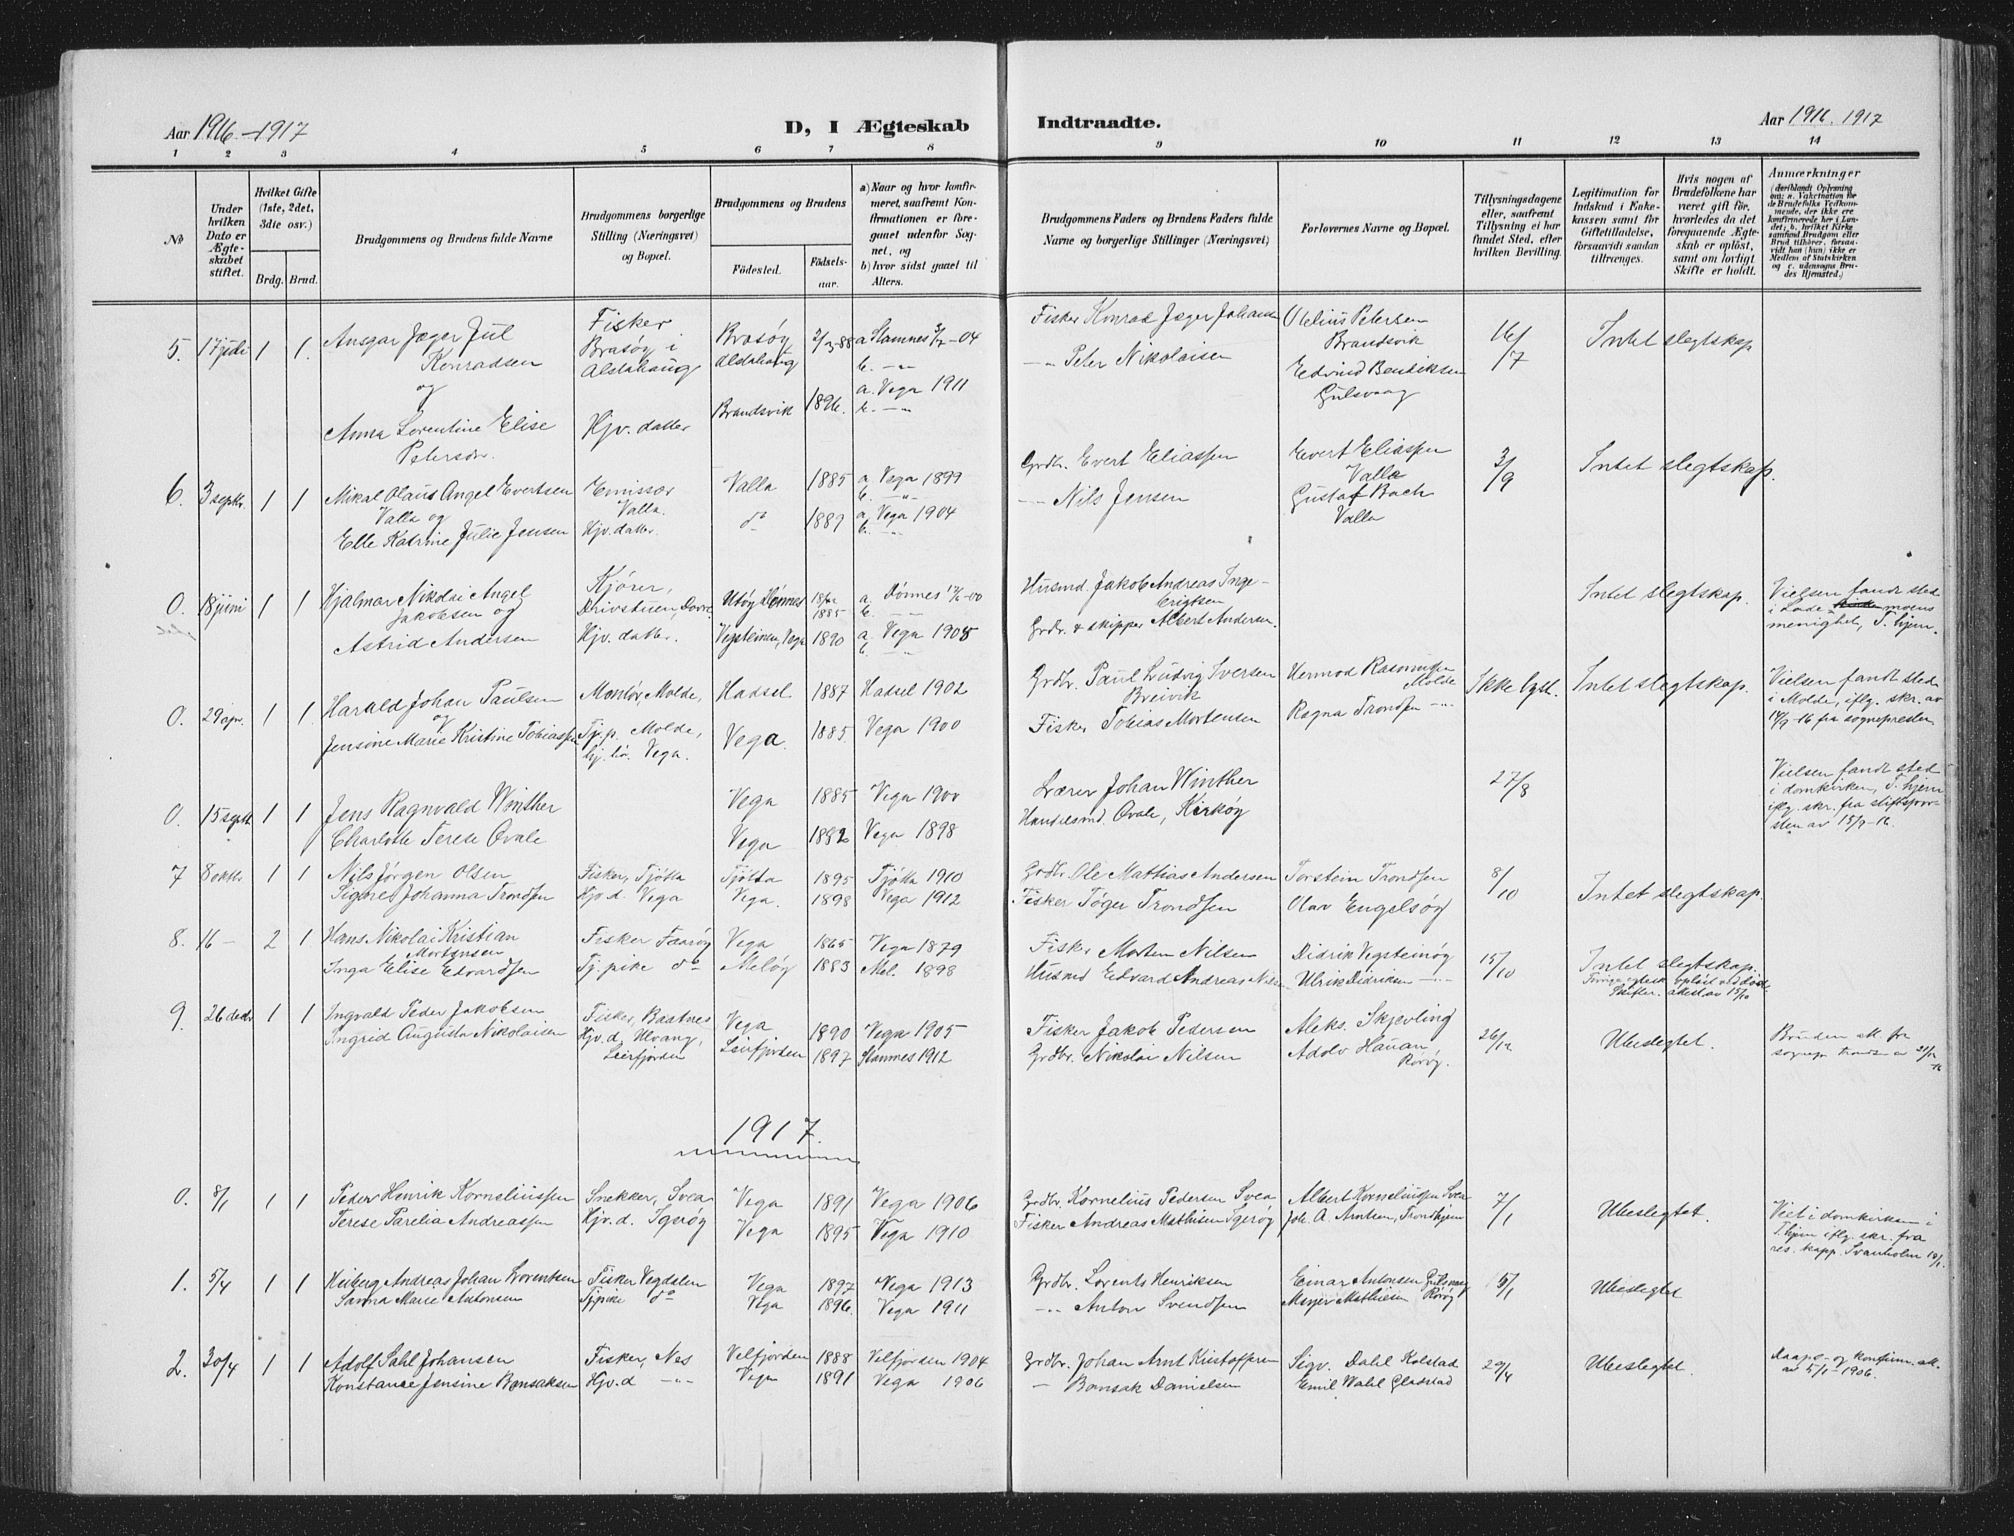 Aar 1916.-1917
D, I Ægteskab Indtraadte.
Aar 1916. 1917
1 2 3 4 5 6 7 8 9 10 11 12 13 14
No
Under hvilken Dato er Ægteskabet stiftet.
Hvilket Gifte (1ste, 2det, 3die osv.)
Brdg. Brud.
Brudgommens og Brudens fulde Navne
Brudgommens borgerlige Stilling (Næringsvei) og Bopæl.
Brudgommens og Brudens
Födested. Födselsaar.
a) Naar og hvor konfirmeret, saafremt Konfirmationen er foregaaet udenfor Sognet, og
b) hvor sidst gaaet til Alters.
Brudgommens Faders og Brudens Faders fulde Navne og borgerlige Stillinger (Næringsvei)
Forlovernes Navne og Bopæl.
Tillysningsdagene eller, saafremt Tillysning ei har fundet Sted, efter hvilken Bevilling.
Legitimation for Indskud i Enkekassen samt för Giftetilladelse, forsaavidt saadan tiltrænges.
Hvis nogen af Brudefolkene har været gift för, hvorledes da det foregaaende Ægteskab er oplöst, samt om lovligt Skifte er holdt.
Anmærkninger
(deriblandt Oplysning om: a. Vakcination for de Brudefolks Vedkommende, der ikke ere konfirmerede her i Landet; b. hvilket Kirkesamfund Brudgom eller Brud tilhörer, forsaavidt han (hun) ikke er Medlem af Statskirken og c. udensogns Brudes Hjemsted.)
5. 17 juli 1 1. Ansgar Jæger Jul Konradsen Fisker Brasøy i Alstahaug Brasøy Alstahaug 88 a Stamnes 04 Fisker Konrad Jæger Johansen Otelius Petersen Brandsvik 16/7 Intet slegtskap
og b. -"- -"- Peter Nikolaisen Edvind Bendiksen Gulsvaag
Anna Lorentine Elise Petersdr. Hjv. datter Brandsvik 1896. a. Vega 1911 b. -"-
6. 3 septbr. 1 1 Mikal Olaus Angel Evertsen Emissær Valla 1885 a. Vega 1899 Grdbr. Evert Eliassen Evert Eliassen Valla 3/9 Intet slegtskap.
Valla og Valla. b. -"-
Elle Katrine Julie Jensen Hjv. datter. do 1889 a. Vega 1904 b. -"- -"- Nils Jensen Gustaf Bach Valla
0. 18 juni 1 1 Hjalmar Nikolai Angel Jakobsen og Kjører, Drivstuen, Dovre Utøy Dønnes 1885 a. Dønnes -00 b. Husmd. Jakob Andreas Inge- Erigtsen Intet slegtskap. Vielsen fandt sted
Astrid Andersen Hjv. datter. Vegsteinen, Vega 1890 a. Vega 1905 b. -"- Grdbr. & skipper Albert Andersen. i Lademoens menighet, T.hjem.
0. 29 apr. 1 1 Harald Johan Paulsen Montør, Molde, Hadsel 1887 Hadsel 1902 Grdbr. Paul Ludvig Iversen Breivik Hermod Rasmussen Molde Ikke lyst. Intet slegtskap. Vielsen fandt sted
og i Molde, iflg. skr. av
Jensine Marie Kristine Tobiassen Tj.p. Molde, hj. hø. Vega. Vega. 1885. Vega 1900 Fisker Tobias Mortensen Ragna Trondsen -"- -16 fra sognepresten
0. 15 septbr. 1 1 Jens Ragnvald Winther Vega 1885 Vega 1900 Lærer Johan Winther 27/8 Vielsen fandt sted
Charlotte Terese Ovale Vega 1882 Vega 1898 Handelsmd. Ovale, Kirkøy i domkirken, T.hjem iflg. skr. fra stiftsprovsten av 15/9-16.
7 8 oktbr. 1 1 Nils Jørgen Olsen Fisker, Tjøtta Tjøtta 1895 Tjøtta 1910 Grdbr. Ole Mathias Andersen Torstein Trondsen 8/10 Intet slegtskap.
Signe Johanna Trondsen Hjv.d. Vega Vega. 1898 Vega 1912 Fisker Tøger Trondsen Olav Engelsøy
8. 16 - 2 1 Hans Nikolai Kristian Mortensen Fisker Faarøy Vega 1865 Vega 1879 Fisker Morten Nilsen Didrik Vegsteinøy 15/10 Intet slegtskap.
Inga Elise Edvardsen Tj. pike do Meløy 1883 Mel. 1898 Husmd Edvard Andreas Nilsen Ulrik Didriksen -"- Forrige egtesk. opløst ved død. Skifter. attest av 15/10
9. 26 decbr. 1 1 Ingvald Peder Jakobsen Fisker, Baatnes Vega 1890 Vega 1905 Fisker Jakob Pedersen Aleks. Skjevling 26/12 Ubeslegtet. Bruden att. fra
Ingrid Augusta Nikolaisen Hjv.d. Ulvang, Leirfjorden Leirfjorden 1897 Stamnes 1912 Grdbr. Nikolai Nilsen Adolv Hauan Rørøy.
1917.
0. 8/1 1 1 Peder Henrik Korneliussen Snekker, Svea Vega 1891 Vega 1906 Grdbr. Kornelius Pedersen Svea Albert Korneliussen Svea 7/1 Ubeslegtet. Viet i domkirken i
Terese Parelia Andreassen Hjv.d. Igerøy Vega 1895 Vega 1910 Fisker Andreas Mathisen Igerøy Joh. A. Arntsen, Trondhjem T.hjem iflg. skr. fra res. kapp. Svanholm
1. 5/4 1 1 Heiberg Andreas Johan Lorentsen Fisker Vegdalen Vega 1897 Vega 1913 Grdbr. Lorents Henriksen Einar Antonsen Gulsvaag 5/1 Ubeslegtet
Sanna Marie Antonsen Tjpike do Vega 1896. Vega 1911 -"- Anton Svendsen Meyer Mathisen Rørøy
2. 30/4 1 1 Adolf Sahl Johansen Fisker, Nes Velfjorden 1888 Velfjorden 1904 Grdbr. Johan Arnt Kristoffersen Sigv. Dahl Kolstad 29/4 Ubeslegtet. Daaps- og konfirm. att.
Konstance Jensine Bonsaksen Hjv.d -"- Vega 1891 Vega 1906 - Bonsak Danielsen Emil Wahl Gladstad av 5/1-1906.